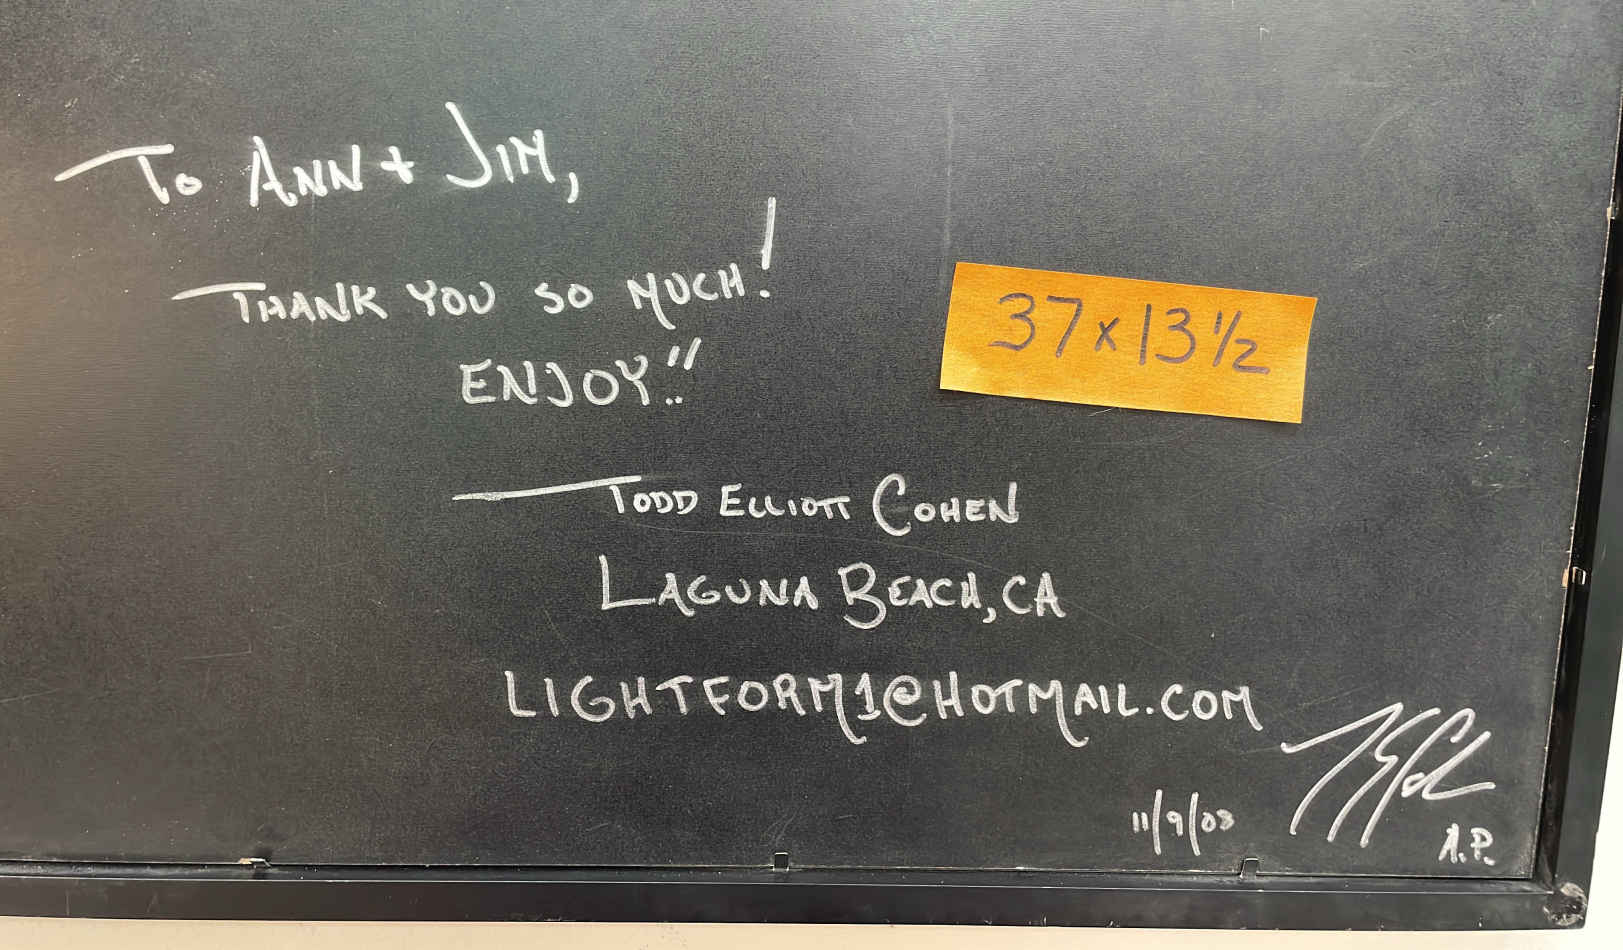 To ANN + JIM,
THANK YOU SO MUCH!
ENJOY!!
37 x 13 1/2
TODD ELLIOTT COHEN
LAGUNA BEACH, CA
LIGHTFORM1@HOTMAIL.COM
11/9/08
A.P.